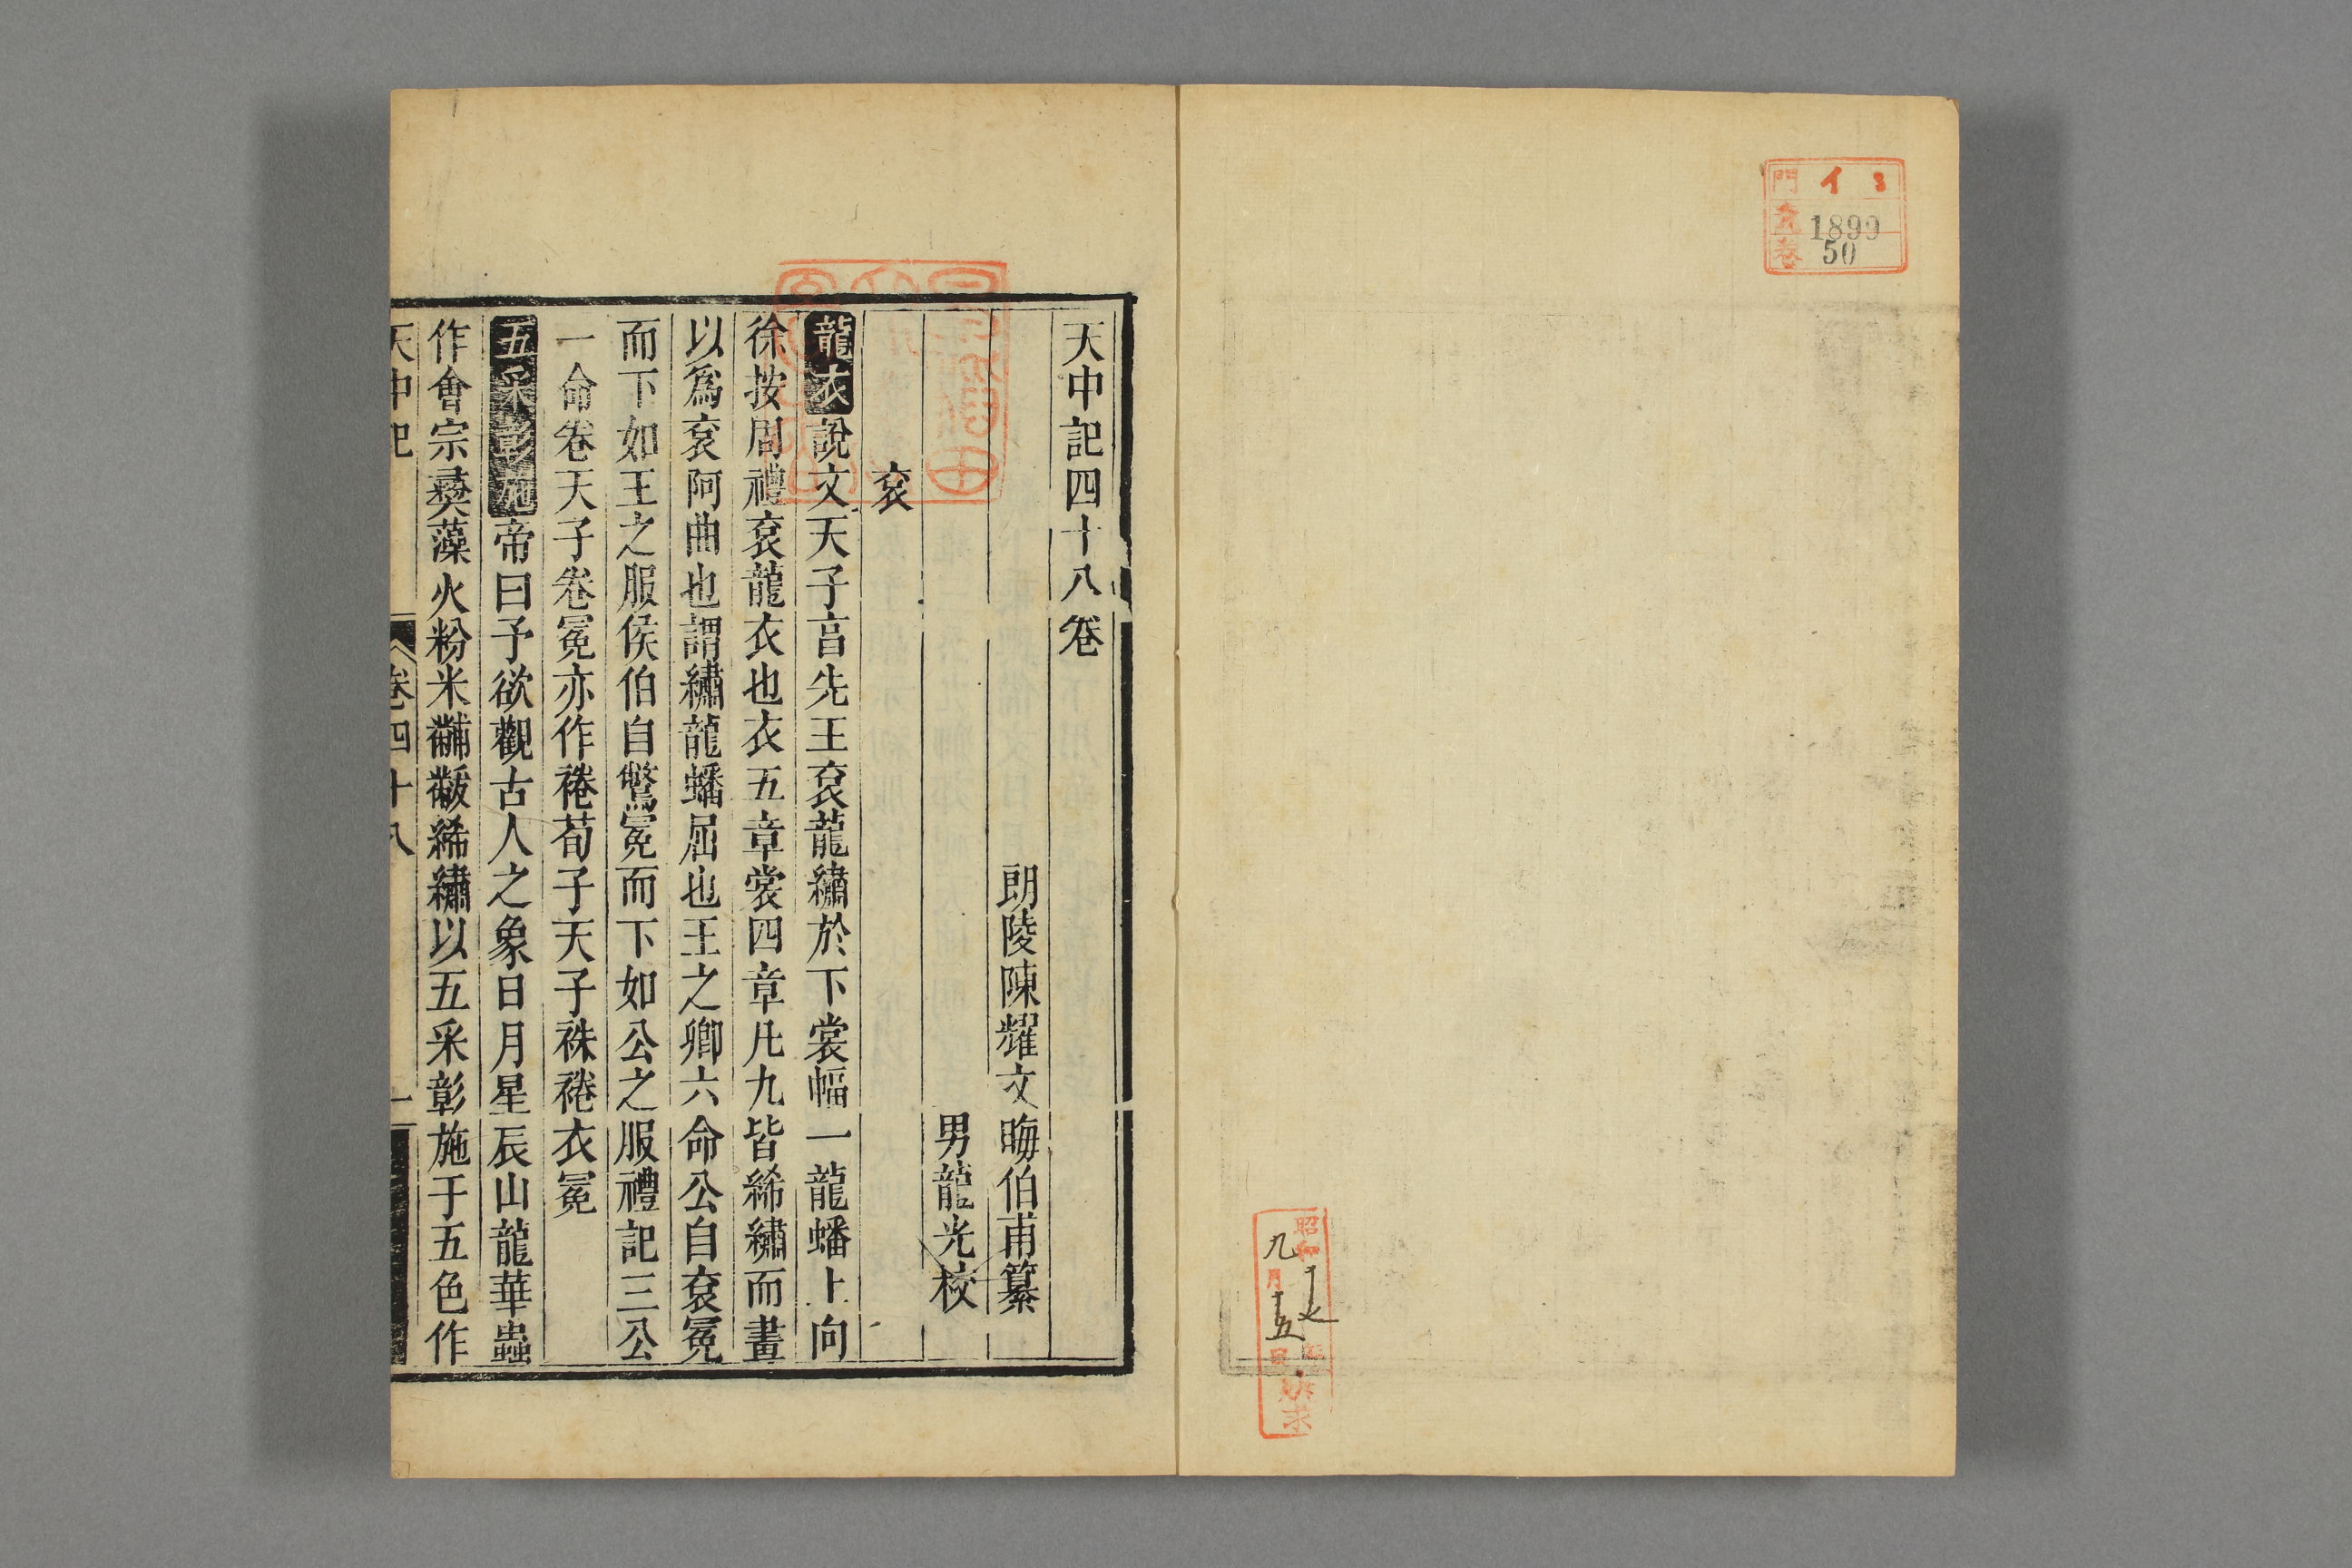 門 イ 3
1899
卷 50
昭和十七年
九月十五日購求
天中記四十八卷
朗陵陳耀文晦伯甫纂
男龍光校
袞
龍衣說文天子亯先王袞龍繡於下裳幅一龍蟠上向
徐按周禮袞龍衣也衣五章裳四章凡九皆絺繡而畫
以爲袞阿曲也謂繡龍蟠屈也王之卿六命公自袞冕
而下如王之服侯伯自鷩冕而下如公之服禮記三公
一命卷天子卷冕亦作裷荀子天子袾裷衣冕
五采彰施帝曰予欲觀古人之象日月星辰山龍華蟲
作會宗彛藻火粉米黼黻絺繡以五采彰施于五色作
天中記 卷四十八 一